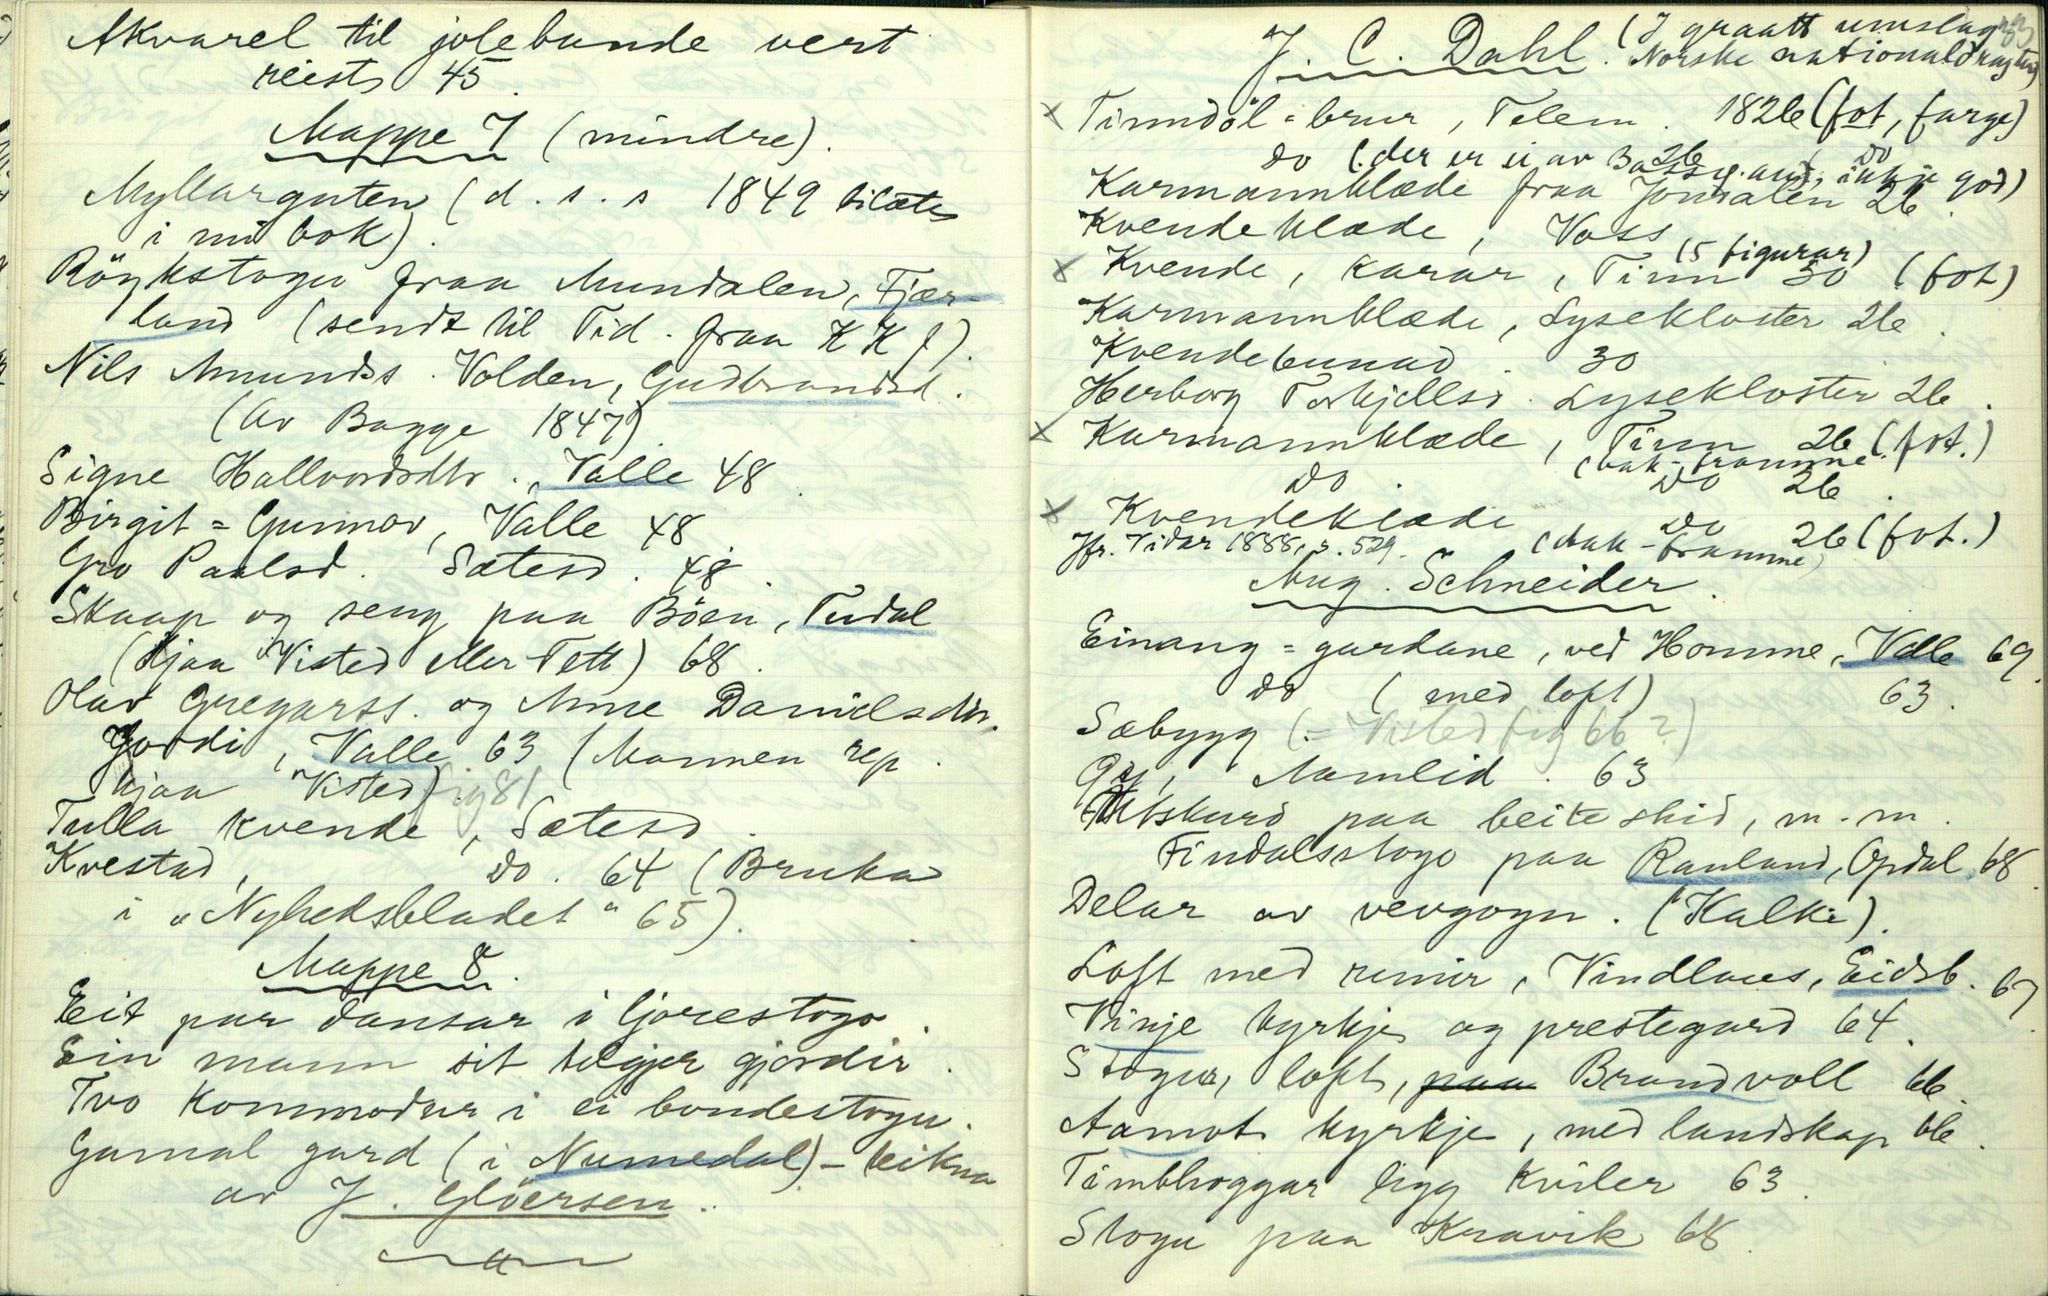 Akvarel til jolebunde vert
reist 45.
Mappe 7 (mindre).
Myllarguten (d. s. s 1849
i mi bok).
Röykstogu fraa Mundalen, Fjær-
land (sendt til Tid. fraa K K f).
Nils Amunds. Volden, Gudbrandsd.
(av Bagge 1847).
Signe Hallvordsdtr., Valle 48.
Birgit = Gunnov, Valle 48
Gro Paalsd. Sætesd. 48.
Skaap og seng paa Böen, Tudal
(hjaa Visted eller Tett) 68.
Olav Gregarss. og Anne Danielsdtr.
Jordi, Valle 63 (Mannen rep.
hjaa Visted) fig 81
Tulla kvende, Sætesd.
Kvestad, Do. 64 (Bruka
i "Nyhedsbladet" 65).
Mappe 8.
Eit par dansar i Gjorestogo.
Ein mann sit telgjer gjordir.
Tvo kommodur i ei bondestogu.
Gamal gard (i Numedal) - teikna
av J. Glöersen.
J. C. Dahl. (I graatt umslag
Norske nationaldragter)
x Tinndöl = brur, Telem. 1826 (fot, farge)
Do (der er ei av 3 26 Do ikkje god)
Karmannklæde fraa Jondalen 26.
Kvendeklæde, Voss
(5 figurar)
x Kvende, karar, Tinn 30 (fot)
Karmannklæde, Lysekloster 26.
Kvendebunad. 30
Herborg Torkjellsd. Lysekloster 26.
x Karmannklæde, Tinn 26 (fot.)
(bak-framme
Do. Do 26.
x Kvendeklæde Do 26 (fot.)
Jfr. Vidar 1888, s. 529. (bak-framme)
Aug. Schneider.
Einang = gardane, ved Homme, Valle 69.
Do (med loft) 63.
Sæbygg (= Visted fig 66?)
Gz, Aamlid. 63
Utskurd paa beiteskid, m.m.
Findalsstogo paa Rauland, Opdal 68.
Delar av vevgogn. (Kalke).
Loft med runir, Vindlaus, Eidsb. 67.
Vinje kyrkje og prestegard 64.
Stogur, loft, paa Brandvoll 66.
Aamot kyrkje, med landskap 66.
Timbhoggar ligg kviler 63.
Stogu paa Kravik 68.